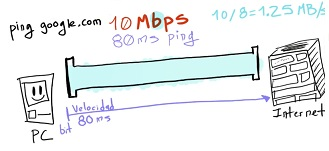 ping google.com
10 Mbps
80ms ping
10/8=1.25 MB/s
Velocidad
80ms
bit
PC
Internet